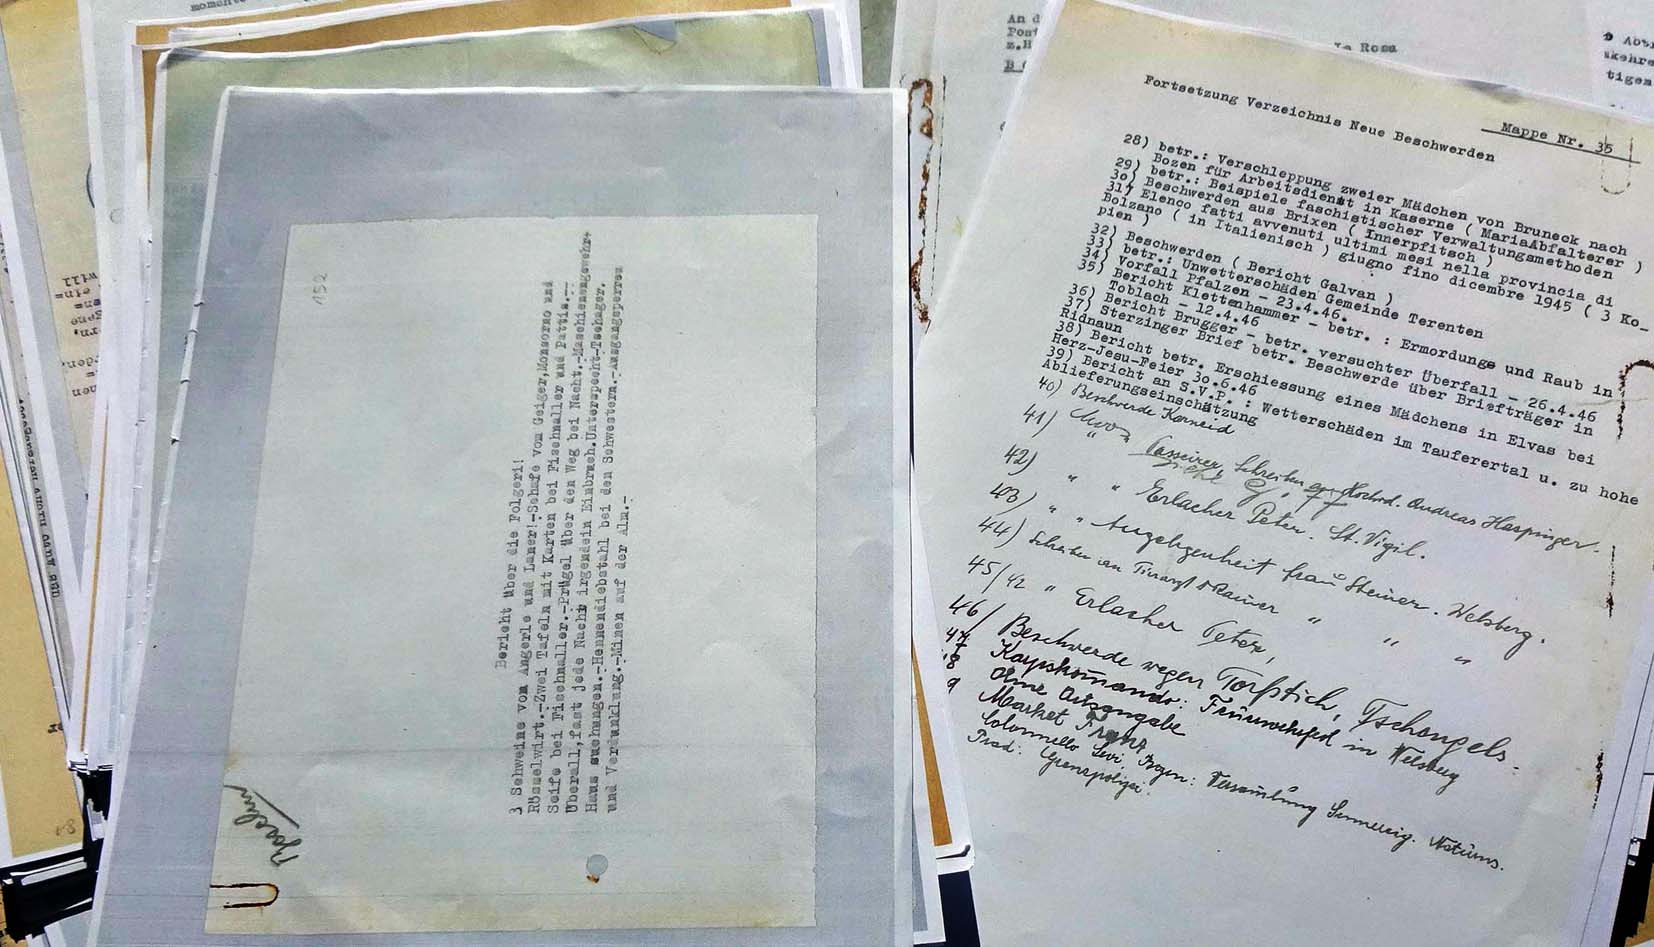 momente
152
Bericht über die Folgeri!
3 Schweine vom Angerle und Laner!-Schafe vom Geiger,Monsorno und
Rösselwirt.-Zwei Tafeln mit Karten bei Fischnaller und Pattis.--
Seife bei Fischnaller.-Prügel über den Weg bei Nacht.-Maschienengewehr+
Überall,fast jede Nacht irgendein Einbruch.Unterspecht-Tschager.
Haus suchungen.-Hennendiebstahl bei den Schwestern.-Ausgangsperren
und Verdunklung.-Minen auf der Alm.-
will
An d
Post
z.H
Rosa
Mappe Nr. 35
Fortsetzung Verzeichnis Neue Beschwerden
28) betr.: Verschleppung zweier Mädchen von Bruneck nach
Bozen für Arbeitsdienst in Kaserne ( MariaAbfalterer )
29) betr.: Beispiele faschistischer Verwaltungsmethoden
30) Beschwerden aus Brixen ( Innerpfitsch )
31) Elenco fatti avvenuti ultimi mesi nella provincia di
Bolzano ( in Italienisch ) giugno fino dicembre 1945 ( 3 Ko_
pien )
32) Beschwerden ( Bericht Galvan )
33) betr.: Unwetterschäden Gemeinde Terenten
34) Vorfall Pfalzen - 23.4.46.
35) Bericht Klettenhammer - betr. : Ermordunge und Raub in
Toblach - 12.4.46
36) Bericht Brugger - betr. versuchter Überfall - 26.4.46
37) Sterzinger Brief betr. Beschwerde über Briefträger in
Ridnaun
38) Bericht betr. Erschiessung eines Mädchens in Elvas bei
Herz-Jesu-Feier 30.6.46
39) Bericht an S.V.P. : Wetterschäden im Taufererta­l u. zu hohe
Ablieferungseinschätzung
40) Beschwerde Karneid
41) " Passeirer Schreiben Hochw. Andreas Haspinger.
42) " " Erlacher Peter. St. Vigil.
43) " " Angelegenheit Frau Steiner. Welsberg.
44) Schreiben an Tierarzt Rainer " " "
45/42 " Erlacher Peter,
46/ Beschwerde wegen Torfstich, Tschengels.
47 Korpskomando: Feuerwehrfest in Welsberg
8 Ohne Ortsangabe
9 Market Franz
Colonnello Levi, Bozen: Versamlung Naturns.
Prad: Grenzpolizei.